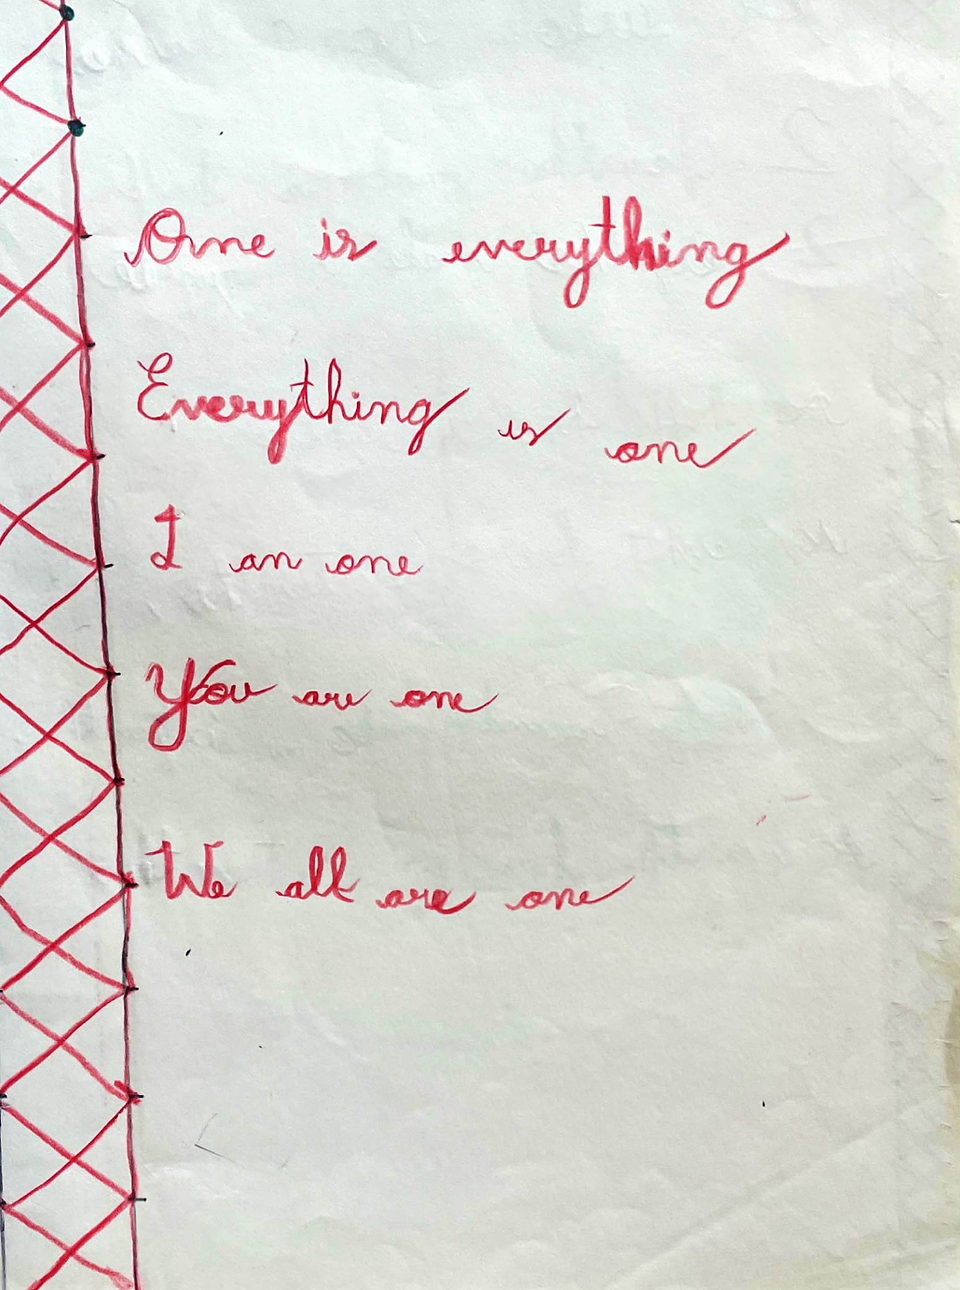 One is everything
Everything is one
I an one
You are one
We all are one